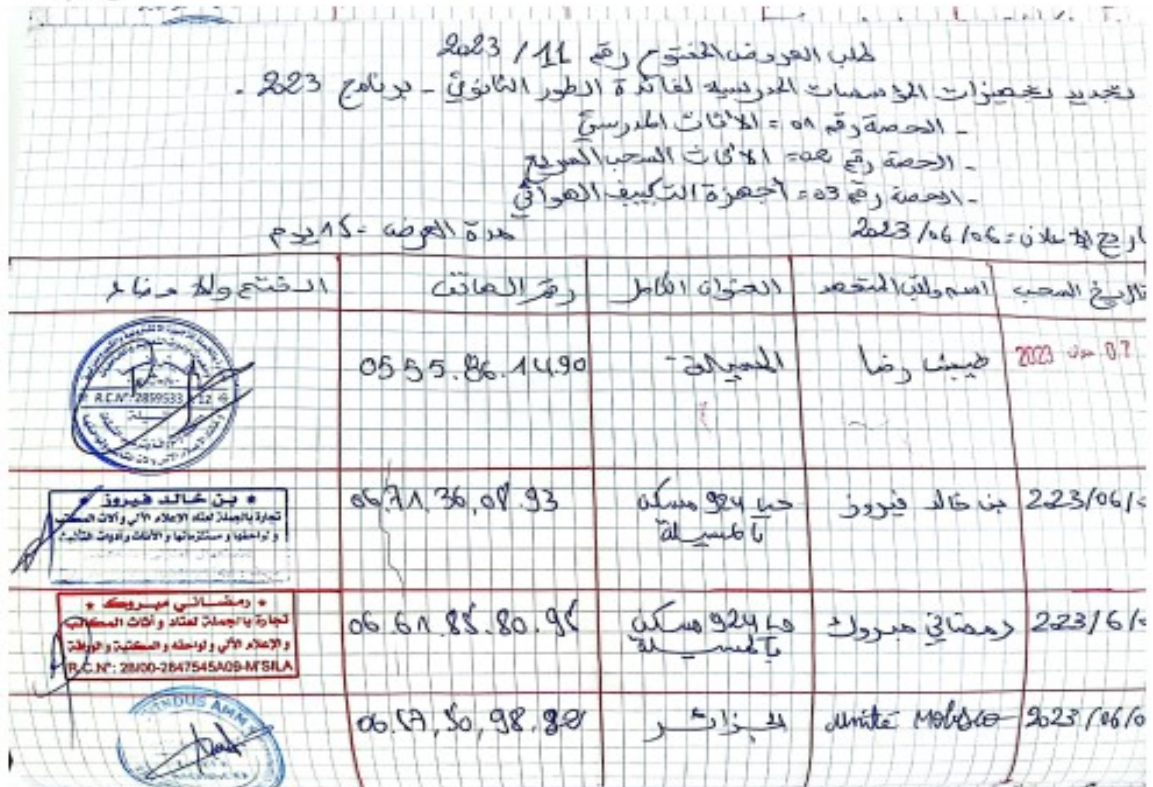 طلب العروض المفتوح رقم 11 / 2023
تجديد تجهيزات المؤسسات المدرسية لفائدة الطور الثانوي - برنامج 2023 -
- الحصة رقم 01 = الأثاث المدرسي
- الحصة رقم 02 = الأثاث
- الحصة رقم 03 = أجهزة التكييف الهوائي
2023/06/06 مدة العرض = 15 يوم
تاريخ السحب اسم ولقب المتعهد العنوان الكامل رقم الهاتف الختم والامضاء
07 جوان 2023 رضا المسيلة 0555.86.1490
R.C.N°: 2899533
2023/06/ بن خالد فيروز حي 924 مسكن بالمسيلة 06,71,36,08.93
* بن خالد فيروز *
تجارة بالجملة لعتاد الإعلام الآلي وآلات المكتب
و لواحقها و مستلزماتها و الأثاث وأدوات التأثيث
2023/6/ رمضاني مبروك حي 924 مسكن بالمسيلة 06.61.85.80.95
* رمضاني مبروك *
تجارة بالجملة لعتاد و أثاث المكاتب
والإعلام الآلي و لواحقه و المكتبة و الوراقة
R.C.N°: 28/00-2847545A09-M'SILA
2023/06/0 unité الجزائر